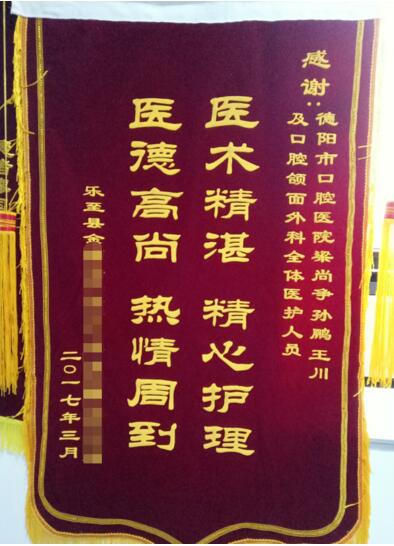 感谢:德阳市口腔医院梁尚争孙鹏王川
及口腔颌面外科全体医护人员
医术精湛 精心护理
医德高尚 热情周到
乐至县金
二〇一七年三月